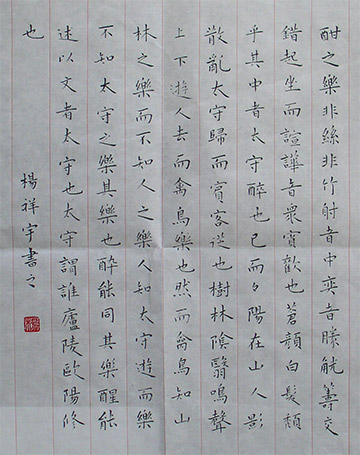 酣之樂非絲非竹射者中奕者勝觥籌交
錯起坐而諠譁者眾賓歡也蒼顏白髮頹
乎其中者太守醉也已而夕陽在山人影
散亂太守歸而賓客從也樹林陰翳鳴聲
上下遊人去而禽鳥樂也然而禽鳥知山
林之樂而不知人之樂人知太守遊而樂
不知太守之樂其樂也醉能同其樂醒能
述以文者太守也太守謂誰廬陵歐陽修
也
楊祥宇書之